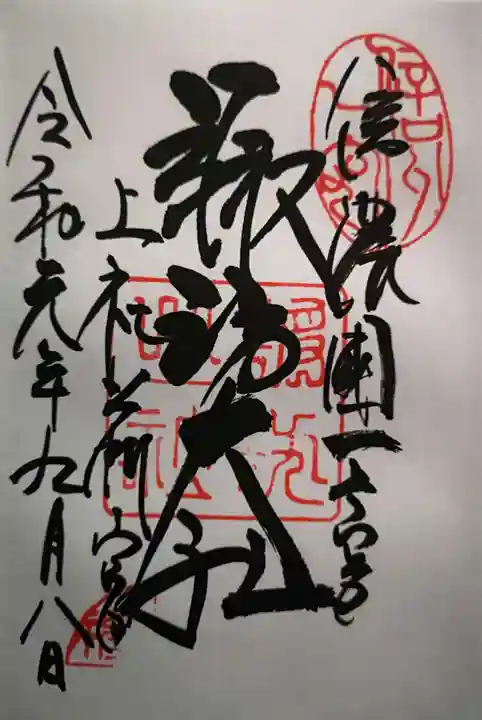 信濃國一宮
諏訪大社
上社前宮
令和元年九月八日